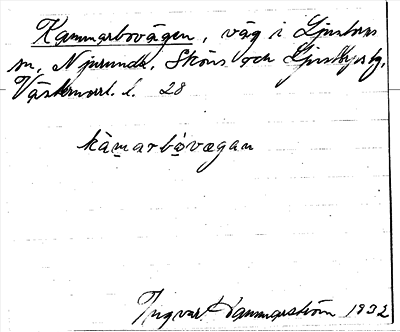 Kammarbovägen, väg i Ljustorps
sn, Njurunda, Sköns och Ljustorps tg,
Västernorrl. l. 28
kàmarbòvægan
Ingvar Hammarström 1932